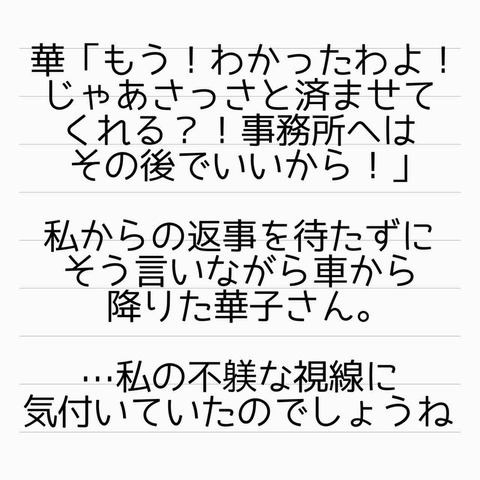 華「もう！わかったわよ！
じゃあさっさと済ませて
くれる？！事務所へは
その後でいいから！」
私からの返事を待たずに
そう言いながら車から
降りた華子さん。
…私の不躾な視線に
気付いていたのでしょうね